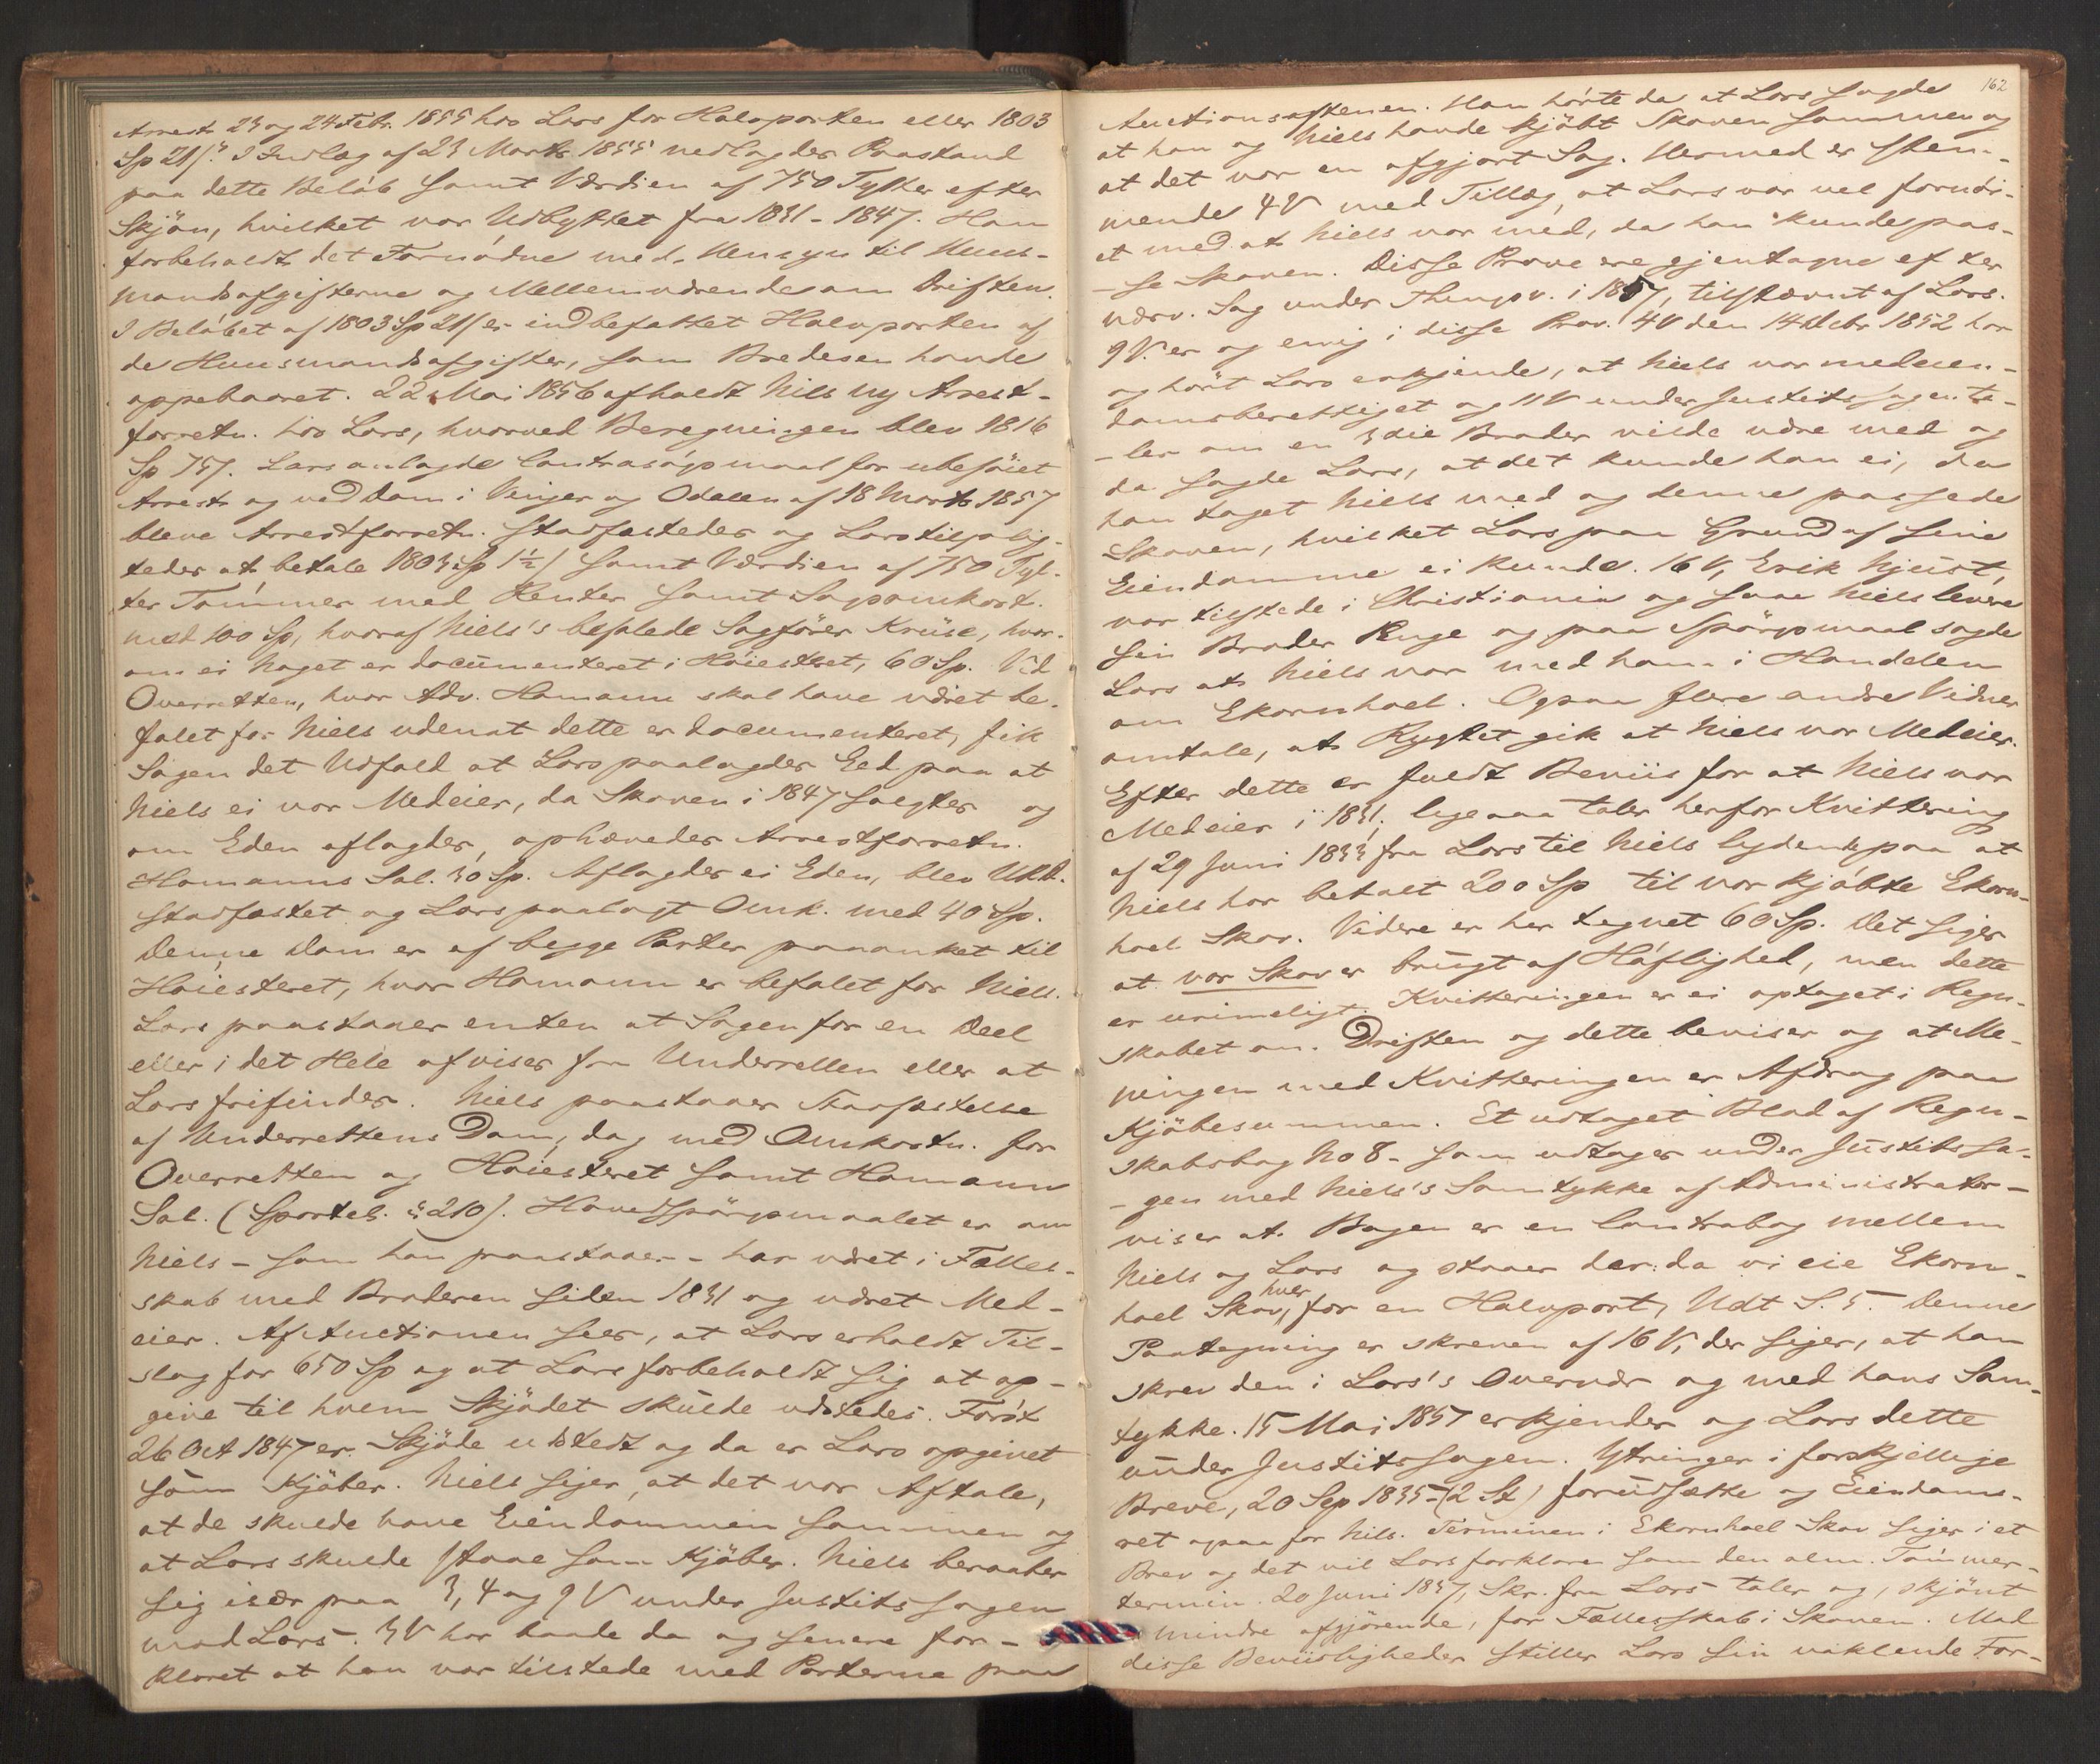 Arrest 23 og 24 Febr. 1855 hos Lars for Halvparten eller 1803
Sp 21/". I Indlæg af 23 Marts 1855 nedlagdes Paastand
paa dette Beløb samt Værdien af 750 Tylter efter
Skjøn, hvilket var Udbyttet fra 1831-1847. Han
forbeholdt det Fornødne med Hensyn til Huus-
mandsafgifterne og Mellemværende om Driften.
I Beløbet af 1803 Sp 21/ er indbefattet Halvparten af
de Huusmandsafgifter, som Bredesen havde
oppebaaret. 22 Mai 1856 afholdt Niels ny Arrest-
forretn. hos Lars, hvorved Beregningen blev 1816
Sp 75/. Lars anlagde Contrasøgsmaal for ubeføiet
Arrest og ved Dom i Vinger og Odalen af 18 Marts 1857
bleve Arrestforretn. stadfæstedes og Lars tilplig-
tedes at betale 1803 Sp 1½/ samt Værdien af 750 Tyl-
ter Tømmer med Renter samt Sagsomkost.
med 100 Sp, hvoraf Niels's befalede Sagfører Kruse, hvor-
om ei Noget er documenteret i Høiesteret, 60 Sp. Ved
Overretten, hvor Adv. Homann skal have været be-
falet for Niels uden at dette er documenteret, fik
Sagen det Udfald at Lars paalagdes Eed paa at
Niels ei var Medeier, da Skoven i 1847 solgtes og
om Eden aflagdes, ophævedes Arrestforretn.
Homanns Sal. 30 Sp. Aflagdes ei Eden, blev URD.
stadfæstet og Lars paalagt Omk. med 40 Sp.
Denne Dom er af begge Parter paaanket til
Høiesteret, hvor Homann er befalet for Niels.
Lars paastaaer enten at Sagen for en Deel
eller i det Hele afvises fra Underretten eller at
Lars frifindes. Niels paastaaer Stadfæstelse
af Underrettens Dom, dog med Omkostn. for
Overretten og Høiesteret samt Homann
Sal. (Sportel. § 210). Hovedspørgsmaalet er om
Niels - som han paastaaer - har været i Fælles-
skab med Broderen siden 1831 og været Med-
eier. Af Auctionen sees, at Lars erholdt Til-
slag for 650 Sp og at Lars forbeholdt sig at op-
give til hvem Skjødet skulde udstedes. Først
26 Oct 1847 er Skjøde udstedt og da er Lars opgivet
som Kjøber. Niels siger, at det var Aftale,
at de skulde have Eiendommen sammen og
at Lars skulde staae som Kjøber. Niels beraaber
sig især paa 3, 4 og 9 V under Justitssagen
mod Lars. 3 V har baade da og senere for-
klaret at han var tilstede med Parterne paa
162
Auctionsaftenen. Han hørte da at Lars sagde
at han og Niels havde kjøbt Skoven sammen og
at det var en afgjort Sag. Hermed er stem-
mende 4 V med Tillæg, at Lars var vel fornøi-
et med at Niels var med, da han kunde pas-
-se Skoven. Disse Prove ere gjentagne efter
nærv. Sag under Thingsv. i 1857, tilstævnt af Lars.
9 V. er og enig i disse Prov. 4 V den 14 Debr 1852 har
og hørt Lars erkjende, at Niels var medeien-
domsberettiget og 11 V under Justitssagen ta-
-ler om en 3die Broder vilde være med og
da sagde Lars, at det kunde han ei, da
han taget Niels med og denne passede
Skoven, hvilket Lars paa Grund af sine
Eiendomme ei kunde. 16 V, Erik Njust,
var tilstede i Christiania og saae Niels levere
sin Broder Penge og paa Spørgsmaal sagde
Lars at Niels var med ham i Handelen
om Ekornhoel. Ogsaa flere andre Vidner
omtale, at Rygtet gik at Niels var Medeier.
Efter dette er fuldt Beviis for at Niels var
Medeier i 1831; ligesaa taler herfor Kvittering
af 29 Juni 1833 fra Lars til Niels lydende paa at
Niels har betalt 200 Sp til vor kjøbte Ekorn-
hoel Skov. Videre er her tegnet 60 Sp. Det siges
at vor Skov er brugt af Høflighed, men dette
er urimeligt. Kvitteringen er ei optaget i Regn-
skabet om Driften og dette beviser og at Me-
ningen med Kvitteringen er Afdrag paa
Kjøbesummen. Et udtaget Blad af Regn-
skabsbog No 8 - som udtoges under Justitssa-
-gen med Niels's Samtykke af Administrator -
viser at Bogen er en Contrabog mellem
Niels og Lars og staaer der: da vi eie Ekorn-
hoel Skov, hver for en Halvpart, Udt S. 5. Denne
Paategning er skreven af 16 V, der siger, at han
skrev den i Lars's Overvær og med hans Sam-
tykke. 15 Mai 1857 erkjender og Lars dette
under Justitssagen. Ytringer i forskjellige
Breve, 20 Sep 1835 - (2 St) forudsætte og Eiendoms-
ret ogsaa for Nils. Terminen i Ekornhoel Skov siges i et
Brev og det vil Lars forklare som den alm. Tømmer-
termin. 20 Juni 1837, Skr. fra Lars taler og, skjønt
mindre afgjørende, for Fællesskab i Skoven. Mod
disse Beviisligheder stiller Lars sin vaklende For-